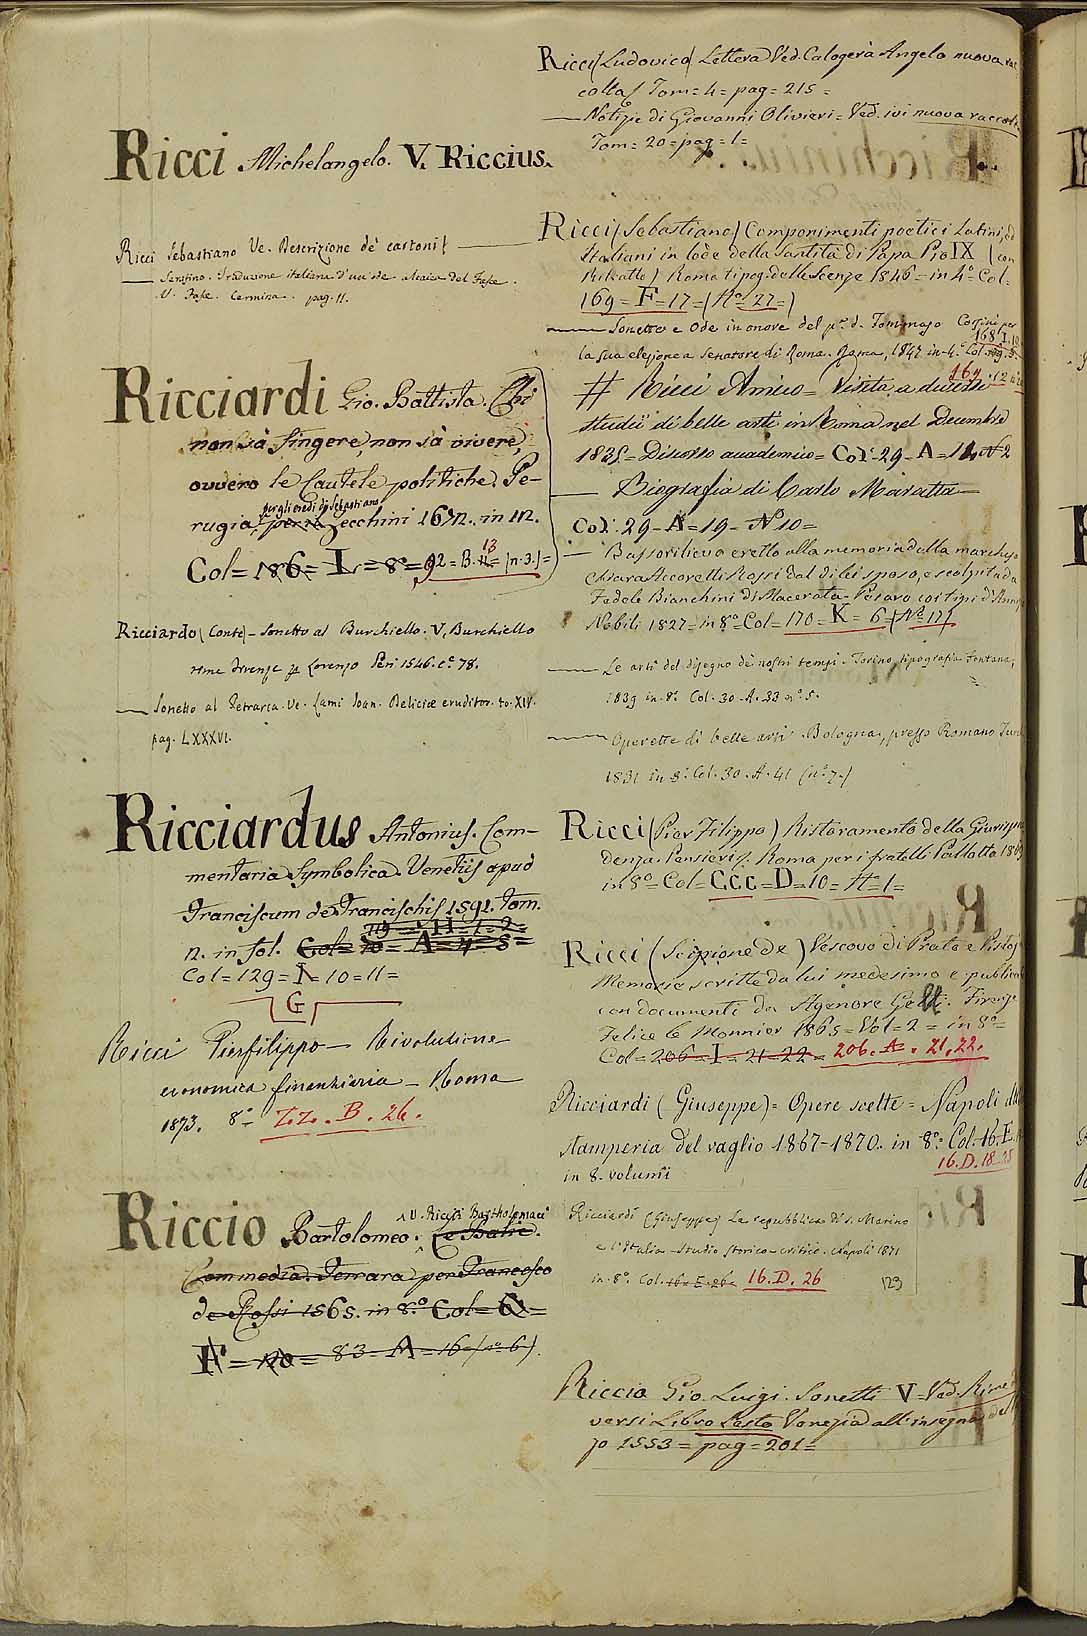 Ricci Michelangelo. V. Riccius.
Ricci Sebastiano Ve. Descrizione de' cartoni
Serafino. Traduzione italiana d'un'ode alcaica del Pape.
V. Pape. Carmina. pag. 11.
Ricciardi Gio. Battista. Chi
non sà fingere, non sà vivere,
ovvero le Cautele politiche. Pe-
per gli eredi di Sebastiano
rugia, per la Zecchini 1672. in 12.
13
Col = 186 = L = 8 = 92 = B. 11 = (n. 3.) =
Ricciardo (Conte) - Sonetto al Burchiello. V. Burchiello
rime Firenze p Lorenzo Peri 1546. c.e 78.
Sonetto al Petrarca. Ve. Lami Joan. Deliciæ eruditor. to. XIV.
pag. LXXXVI.
Ricciardus Antonius. Com-
mentaria Symbolica. Venetiis apud
Franciscum de Francischis 1591. Tom.
2. in fol. Col = = A = 4 = 8 =
Col = 129 = I = 10 = 11 =
G
Ricci Pierfilippo — Rivoluzione
economica finanziaria — Roma
1873. 8° Z.Z. B. 26.
V. Riccii Bartholomaei
Riccio Bartolomeo. Le Balie.
Commedia. Ferrara per Francesco
de Rossi 1565. in 8.° Col = Q =
F = 120 = 83 = A = 16 = (n° 6)
Ricci (Ludovico) Lettera Ved. Calogerà Angelo nuova rac
colta Tom = 4 = pag = 215 =
— Notizie di Giovanni Olivieri = Ved. ivi nuova raccolta
Tom = 20 = pag = 1 =
Ricci (Sebastiano) Componimenti poetici Latini, ed
Italiani in lode della Santità di Papa Pio IX (con
Ritratto) Roma tipog. delle Scienze 1846 = in 4° Col =
169 = F = 17 = (N° 27 =)
— Sonetto e Ode in onore del p.e d. Tommaso Corsini per
168. I. 10
la sua elezione a Senatore di Roma. Roma, 1847. in 4.° Col.
# Ricci Amico = Visita a diversi
studii di belle arti in Roma nel Decembre
1835 = Discorso accademico = Col: 29 - A = 12 N 2
— Biografia di Carlo Maratta —
Col: 29 - A = 19 - N° 10 =
— Bassorilievo eretto alla memoria della marchesa
Chiara Accoretti Rossi dal di lei sposo, e scolpito da
Fedele Bianchini di Macerata = Pesaro coi tipi d'Annes
Nobili 1827 = in 8° = Col = 170 = K = 6 = (N° 17)
— Le arti del disegno de' nostri tempi. Torino, tipografia Fontana,
1839 in-8.° Col. 30. A. 33 n° 5.
— Operette di belle arti. Bologna, presso Romano Turc
1831 in 8.° Col. 30. A. 41 (n° 7.)
Ricci (Pier Filippo) Ristoramento della Giurispru
denza. Pensieri. Roma per i fratelli Pallotta 18
in 8° = Col = CCC = D = 10 = N = 1 =
Ricci (Scipione de) Vescovo di Prato e Pistoj
Memorie scritte da lui medesimo e pubblica
con documenti da Agenore Gelli. Firenze
Felice Le Monnier 1865 = Vol = 2 = in 8° =
Col = 206 = I = 21 = 22 = 206. A. 21. 22.
Ricciardi (Giuseppe) = Opere scelte = Napoli dal
stamperia del vaglio 1867 = 1870. in 8° = Col. 16. E.
in 8. volumi 16. D. 18-25
Ricciardi (Giuseppe) La repubblica di S. Marino
e l'Italia - Studio storico = critico. Napoli 1871
in 8°. Col. 16. E. 26 16. D. 26 (23)
Riccio Gio. Luigi. Sonetti V = Ved. Rime
versi Libro Sesto Venezia all'insegna del
zo 1553 = pag = 201 =